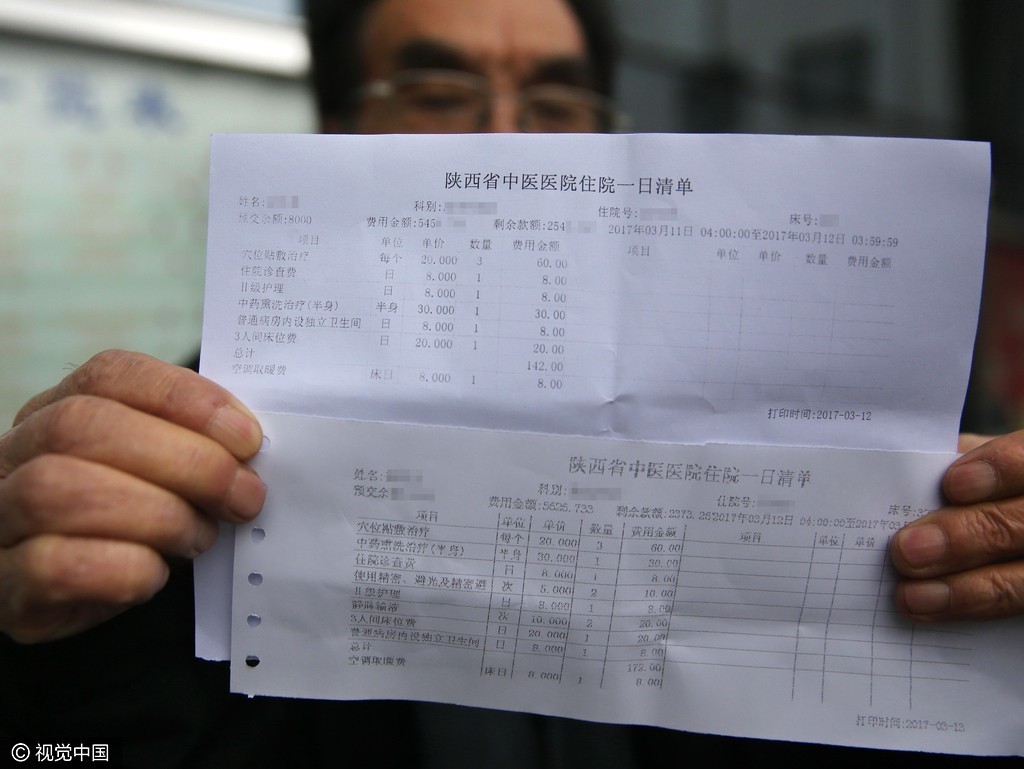 陕西省中医医院住院一日清单
姓名: 科别: 住院号: 床号:
预交余额:8000 费用金额:545 剩余款额:254 2017年03月11日 04:00:00至2017年03月12日 03:59:59
项目 单位 单价 数量 费用金额 项目 单位 单价 数量 费用金额
穴位贴敷治疗 每个 20.000 3 60.00
住院诊查费 日 8.000 1 8.00
Ⅱ级护理 日 8.000 1 8.00
中药熏洗治疗(半身) 半身 30.000 1 30.00
普通病房内设独立卫生间 日 8.000 1 8.00
3人间床位费 日 20.000 1 20.00
总计 142.00
空调取暖费 床日 8.000 1 8.00
打印时间:2017-03-12
陕西省中医医院住院一日清单
姓名: 科别: 住院号: 床号:
预交余 费用金额:5626.733 剩余款额:2373.26 2017年03月12日 04:00:00至2017年03
项目 单位 单价 数量 费用金额 项目 单位 单价
穴位贴敷治疗 每个 20.000 3 60.00
中药熏洗治疗(半身) 半身 30.000 1 30.00
住院诊查费 日 8.000 1 8.00
使用精密、避光及精密避 次 5.000 2 10.00
Ⅱ级护理 日 8.000 1 8.00
静脉输液 次 10.000 2 20.00
3人间床位费 日 20.000 1 20.00
普通病房内设独立卫生间 日 8.000 1 8.00
总计 172.00
空调取暖费 床日 8.000 1 8.00
打印时间:2017-03-13
© 视觉中国